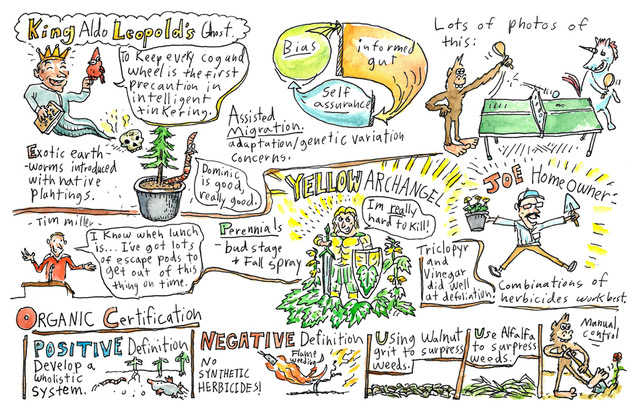 King Aldo Leopold's Ghost.
To Keep every cog and
wheel is the first
precaution in
intelligent
tinkering.
Exotic earth-
-worms introduced
with native
plantings.
Dominic
is good,
really good.
Bias
informed
gut
Self
assurance
Assisted
Migration.
adaptation/genetic variation
concerns.
Lots of photos of
this:
-Tim miller-
I Know when lunch
is... I've got lots
of escape pods to
get out of this
thing on time.
Perennials
-bud stage
+ Fall spray
YELLOW ARCHANGEL
I'm really
hard to Kill!
Triclopyr
and
Vinegar
did well
at defoliation.
JOE Homeowner-
Combinations of
herbicides work best.
ORGANIC Certification
POSITIVE Definition
Develop a
wholistic
system.
NEGATIVE Definition
NO
SYNTHETIC
HERBICIDES!
Flame
weeding
Using Walnut
grit to surpress
weeds.
Use Alfalfa
to surpress
weeds.
Manual
control